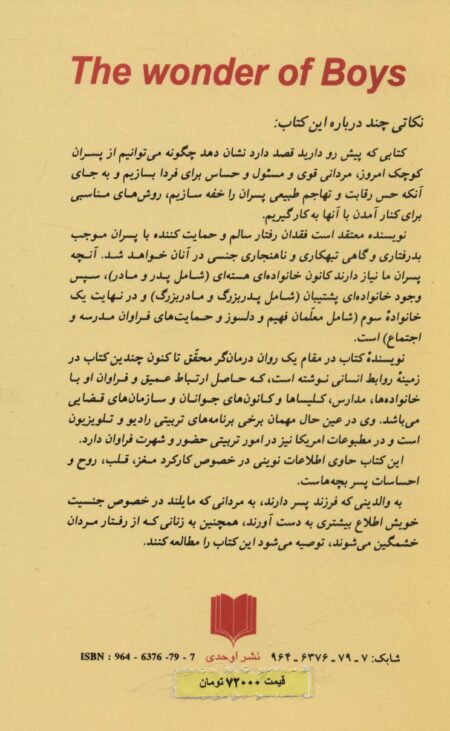 The wonder of Boys
نکاتی چند درباره این کتاب:
کتابی که پیش رو دارید قصد دارد نشان دهد چگونه می‌توانیم از پسران
کوچک امروز، مردانی قوی و مسئول و حساس برای فردا بسازیم و به جای
آنکه حس رقابت و تهاجم طبیعی پسران را خفه سازیم، روش‌های مناسبی
برای کنار آمدن با آنها به کار گیریم.
نویسنده معتقد است فقدان رفتار سالم و حمایت کننده با پسران موجب
بدرفتاری و گاهی تبهکاری و ناهنجاری جنسی در آنان خواهد شد. آنچه
پسران ما نیاز دارند کانون خانواده‌ای هسته‌ای (شامل پدر و مادر)، سپس
وجود خانواده‌ای پشتیبان (شامل پدربزرگ و مادربزرگ) و در نهایت یک
خانوادهٔ سوم (شامل معلّمان فهیم و دلسوز و حمایت‌های فراوان مدرسه و
اجتماع) است.
نویسندهٔ کتاب در مقام یک روان درمان‌گر محقّق تا کنون چندین کتاب در
زمینهٔ روابط انسانی نوشته است، که حاصل ارتباط عمیق و فراوان او با
خانواده‌ها، مدارس، کلیساها و کانون‌های جوانان و سازمان‌های قضایی
می‌باشد. وی در عین حال مهمان برخی برنامه‌های تربیتی رادیو و تلویزیون
است و در مطبوعات امریکا نیز در امور تربیتی حضور و شهرت فراوان دارد.
این کتاب حاوی اطلاعات نوینی در خصوص کارکرد مغز، قلب، روح و
احساسات پسر بچه‌هاست.
به والدینی که فرزند پسر دارند، به مردانی که مایلند در خصوص جنسیت
خویش اطلاع بیشتری به دست آورند، همچنین به زنانی که از رفتار مردان
خشمگین می‌شوند، توصیه می‌شود این کتاب را مطالعه کنند.
شابک: ۷ - ۷۹ - ۶۳۷۶ - ۹۶۴ نشر اوحدی ISBN : 964 - 6376 -79 - 7
قیمت ۷۲۰۰۰ تومان